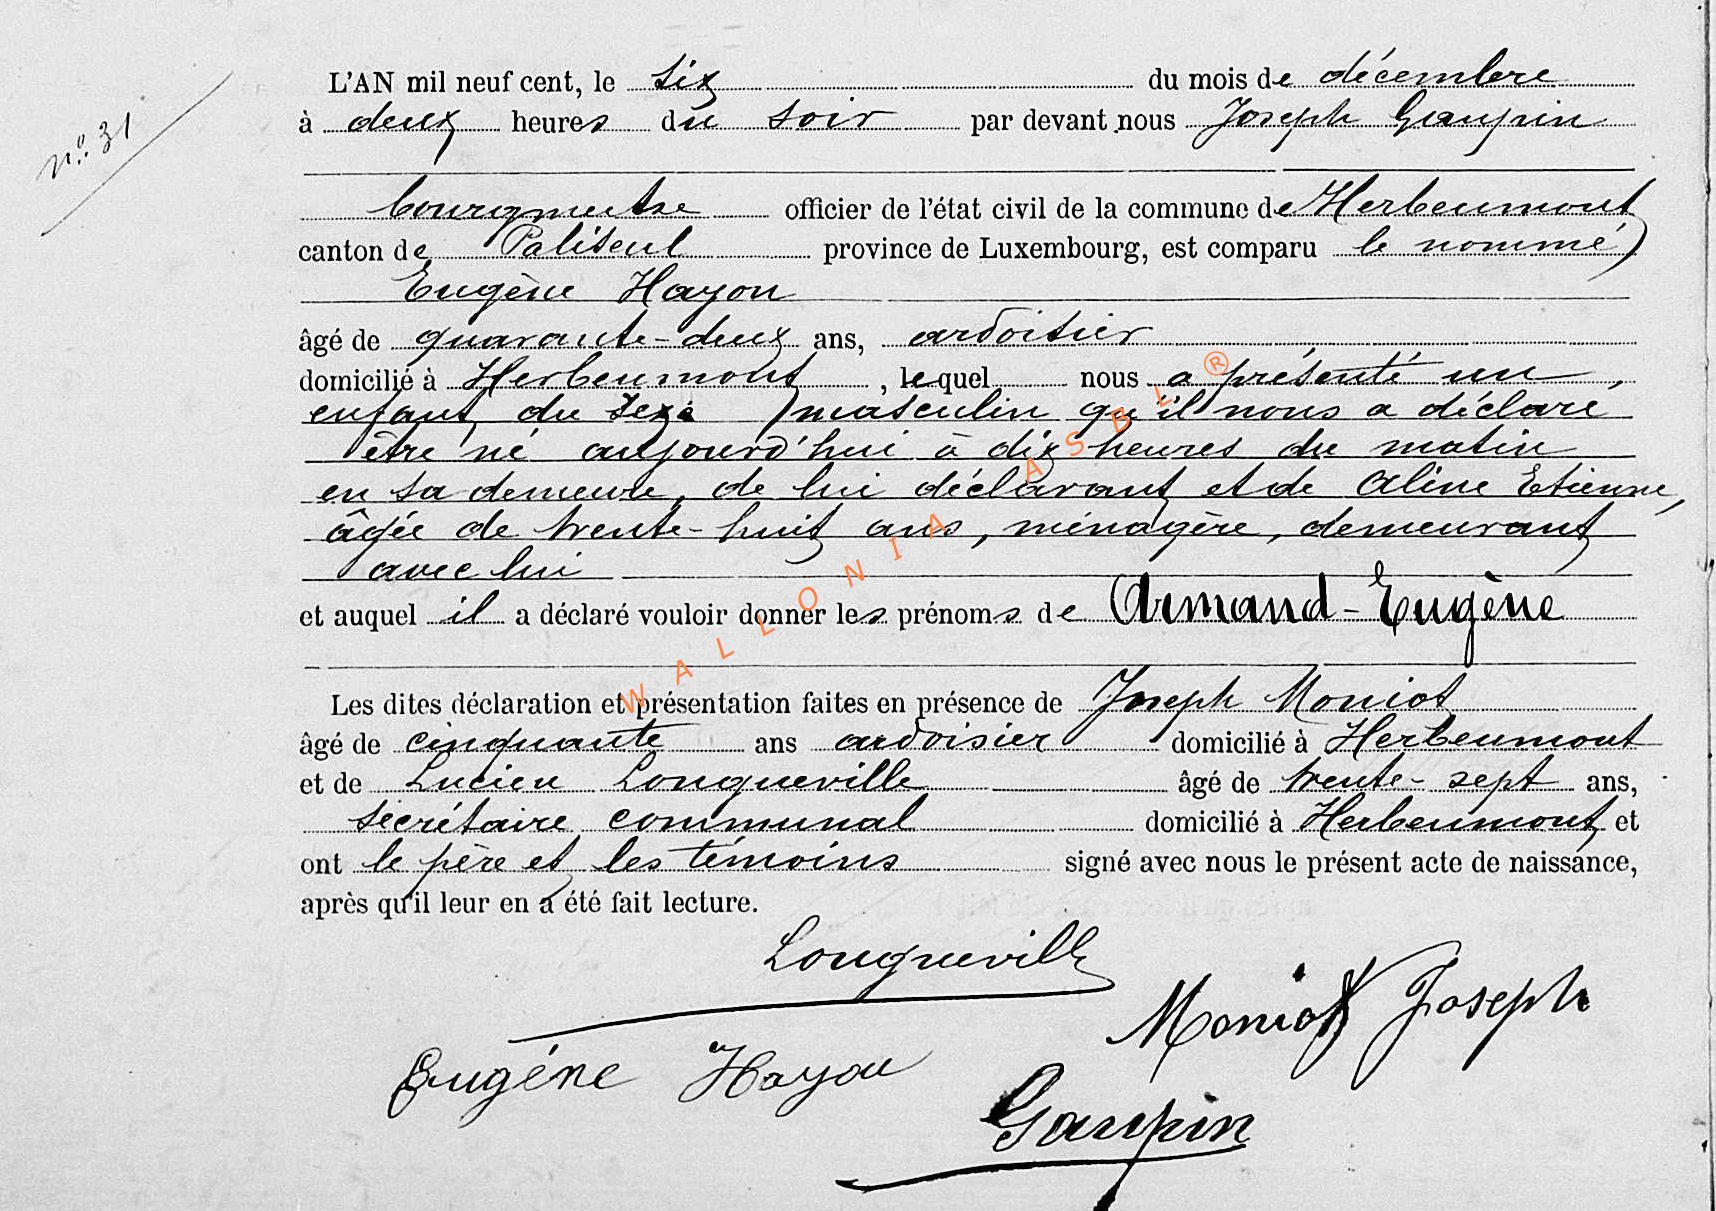 n.° 31
L'AN mil neuf cent, le six du mois de décembre
à deux heures du soir par devant nous Joseph Gaupin
bourgmestre officier de l'état civil de la commune de Herbeumont
canton de Paliseul province de Luxembourg, est comparu le nommé
Eugène Hayon
âgé de quarante-deux ans, ardoisier
domicilié à Herbeumont, lequel nous a présenté un
enfant du sexe masculin qu'il nous a déclaré
être né aujourd'hui à dix heures du matin
en sa demeure, de lui déclarant et de Aline Etienne,
âgée de trente-huit ans, ménagère, demeurant
avec lui
et auquel il a déclaré vouloir donner les prénoms de Armand-Eugène
Les dites déclaration et présentation faites en présence de Joseph Moniot
âgé de cinquante ans ardoisier domicilié à Herbeumont
et de Lucien Longueville âgé de trente-sept ans,
secrétaire communal domicilié à Herbeumont, et
ont le père et les témoins signé avec nous le présent acte de naissance,
après qu'il leur en a été fait lecture.
Longueville
Moniot Joseph
Eugéne Hayon
Gaupin
WALLONIA ASBL ®